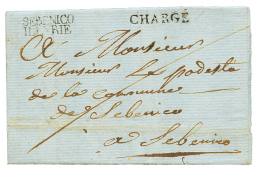 SEBENICO
ILLYRIE
CHARGÉ
A Monsieur
Monsieur Le podesta
de la commune
de Sebenico
a Sebenico